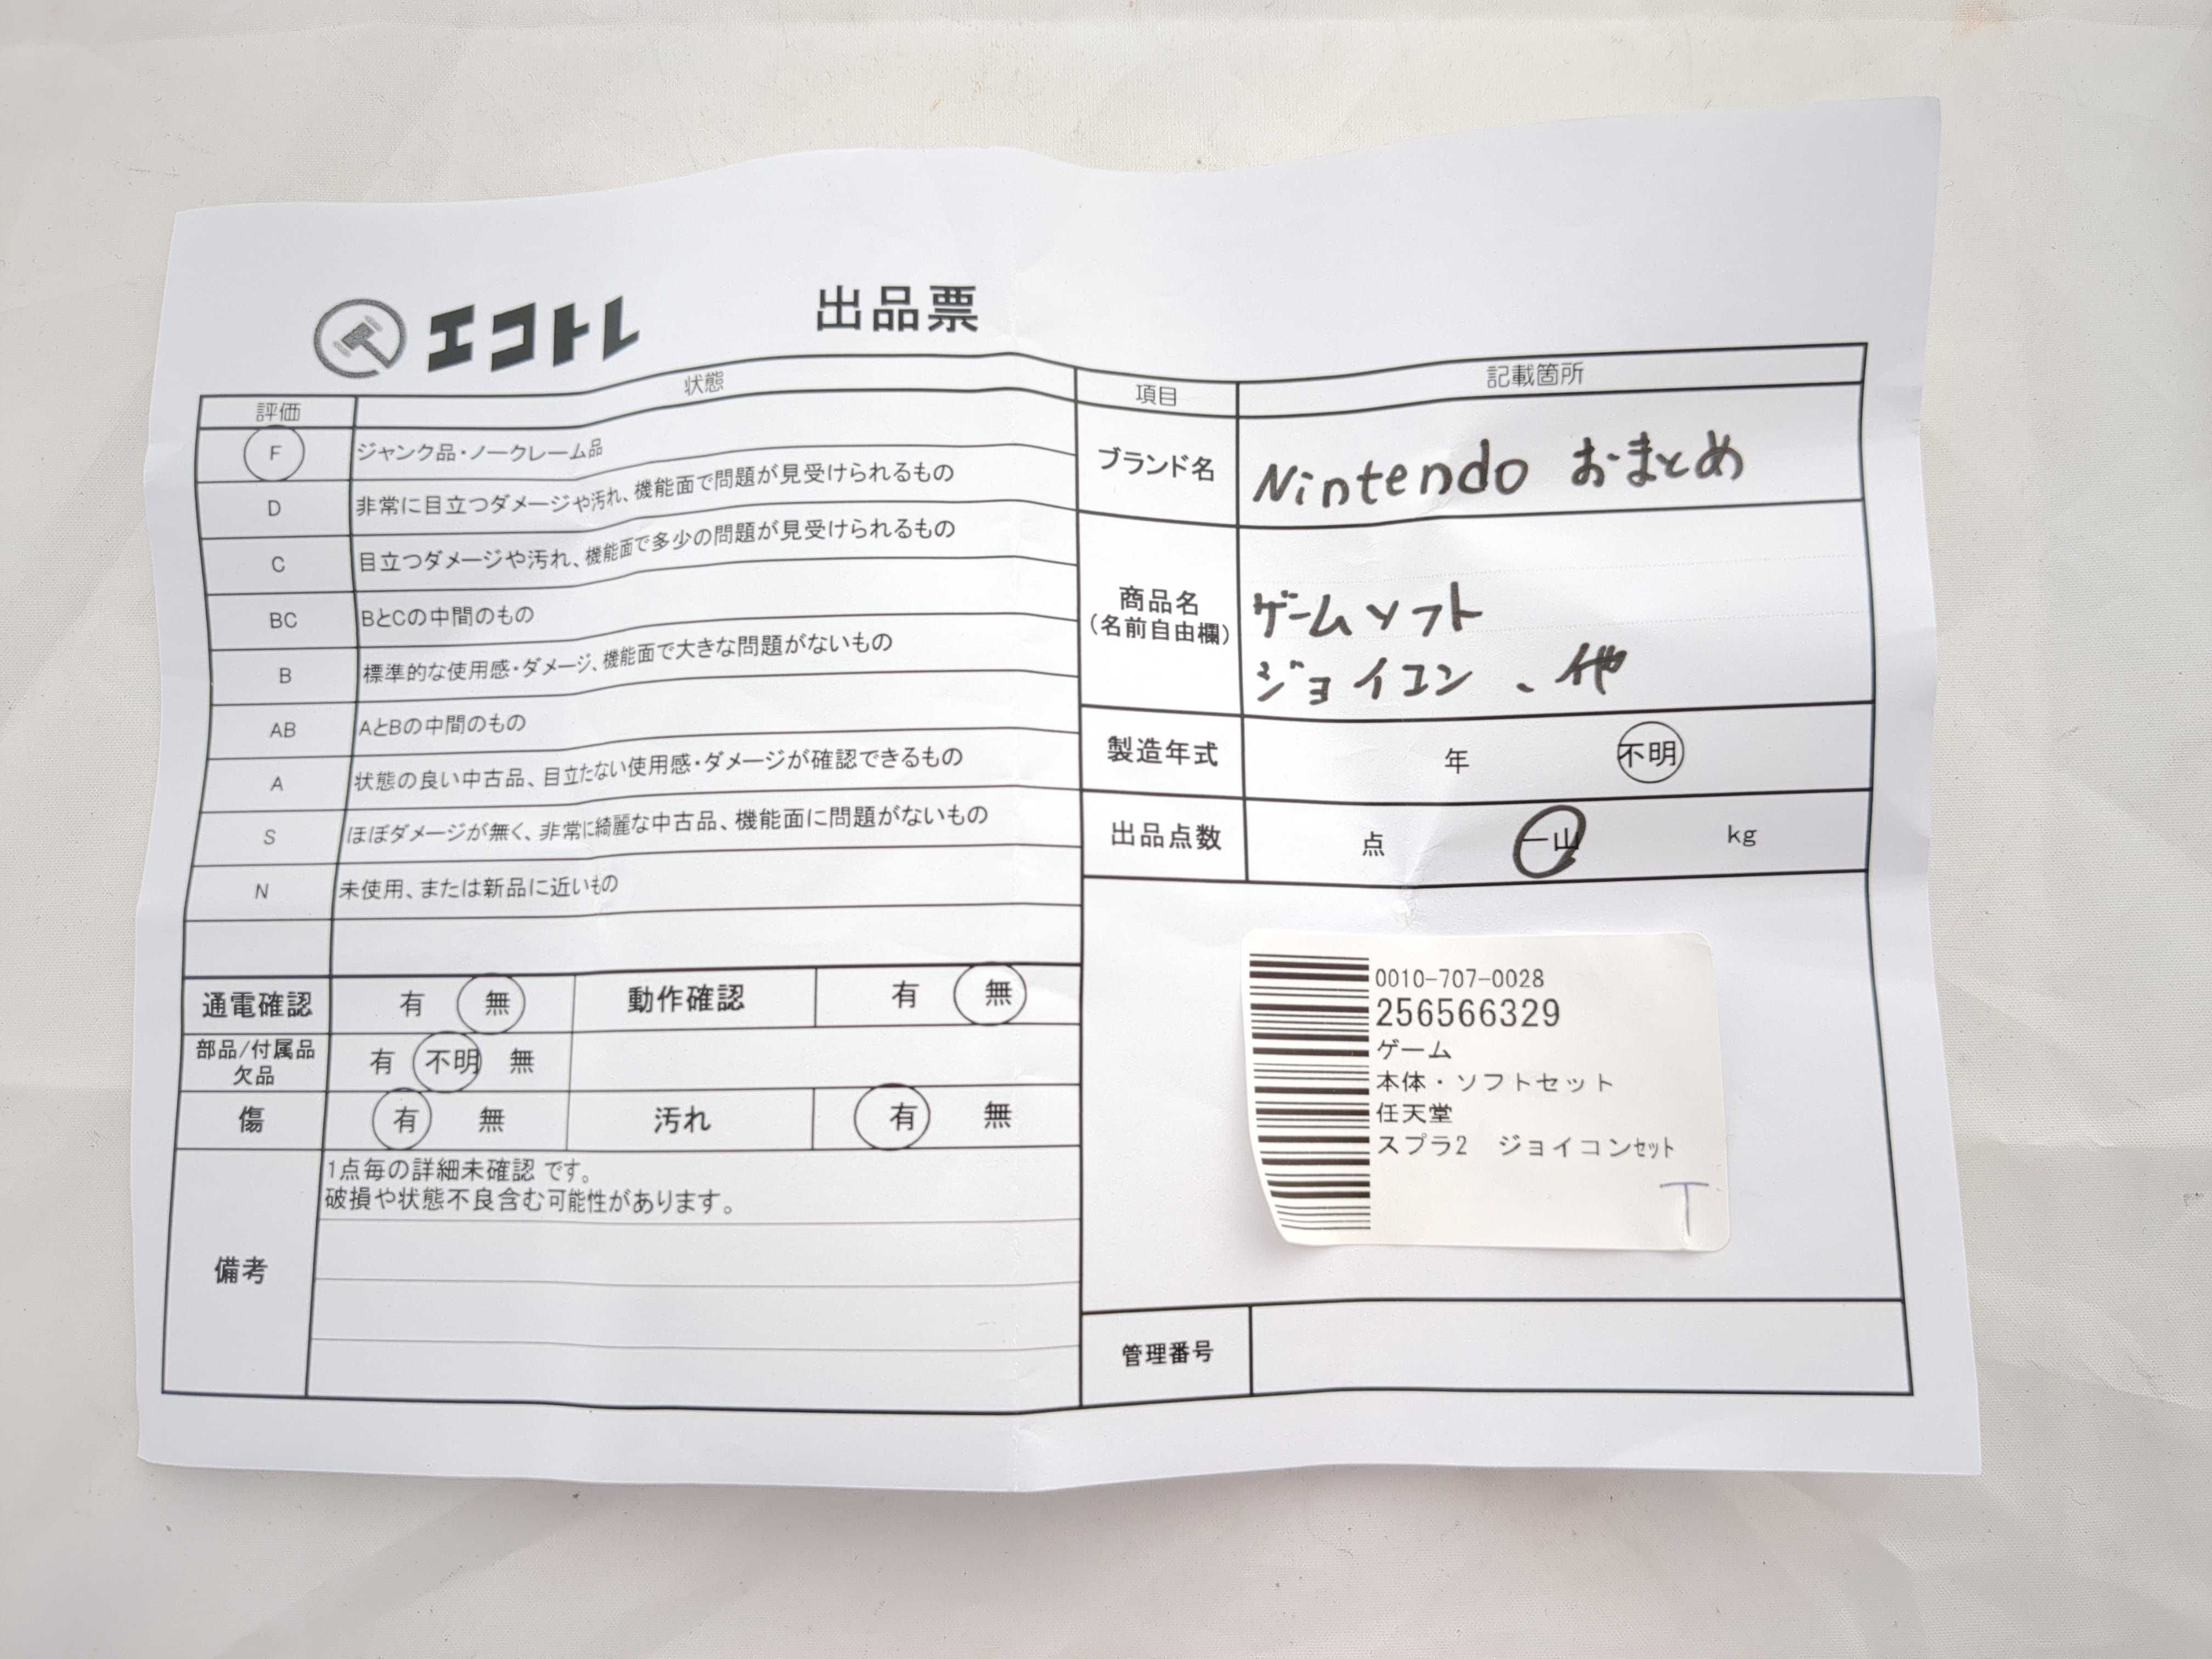 エコトレ
出品票
評価 状態
F ジャンク品・ノークレーム品
D 非常に目立つダメージや汚れ、機能面で問題が見受けられるもの
C 目立つダメージや汚れ、機能面で多少の問題が見受けられるもの
BC BとCの中間のもの
B 標準的な使用感・ダメージ、機能面で大きな問題がないもの
AB AとBの中間のもの
A 状態の良い中古品、目立たない使用感・ダメージが確認できるもの
S ほぼダメージが無く、非常に綺麗な中古品、機能面に問題がないもの
N 未使用、または新品に近いもの
通電確認 有 無 動作確認 有 無
部品/付属品
欠品 有 不明 無
傷 有 無 汚れ 有 無
備考
1点毎の詳細未確認 です。
破損や状態不良含む可能性があります。
項目 記載箇所
ブランド名 Nintendo おまとめ
商品名
(名前自由欄)
ゲームソフト
ジョイコン、他
製造年式 年 不明
出品点数 点 一山 kg
0010-707-0028
256566329
ゲーム
本体・ソフトセット
任天堂
スプラ2 ジョイコンセット
T
管理番号